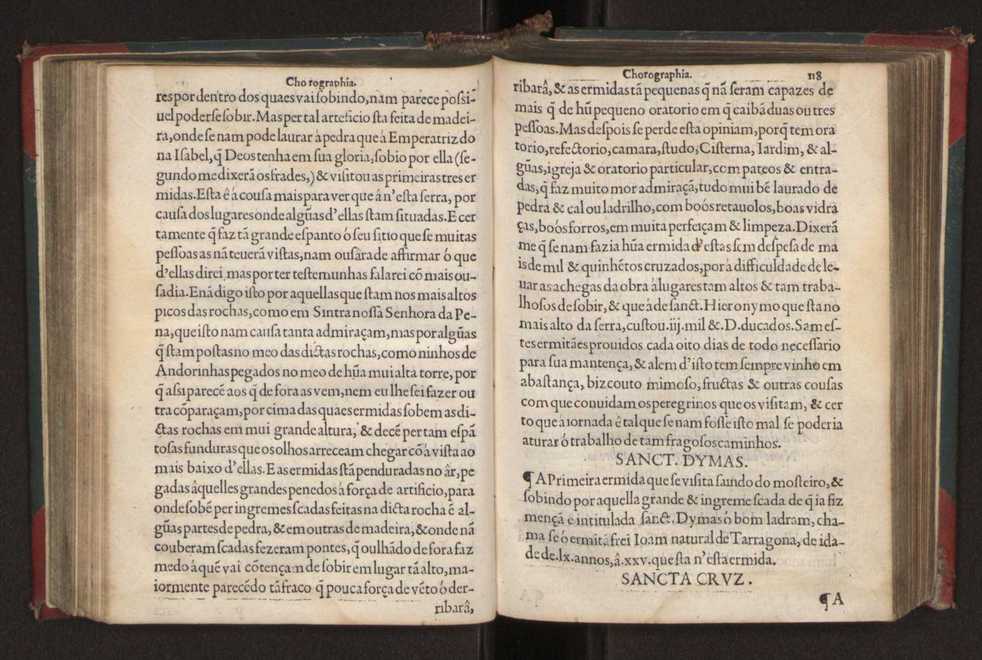 Chorographia.
res por dentro dos quaes vai sobindo, nam parece possi-
uel poderse sobir. Mas per tal arteficio sta feita de madei-
ra, onde se nam pode laurar à pedra que à Emperatriz do
na Isabel, q̃ Deos tenha em sua gloria, sobio por ella (se-
gundo me dixerã os frades,) & visitou as primeiras tres er
midas. Esta é à cousa mais para ver que â n'esta serra, por
causa dos lugares onde algũas d'ellas stam situadas. E cer
tamente q̃ faz tã grande espanto ó seu sitio que se muitas
pessoas as nã teuerã vistas, nam ousâra de affirmar ó que
d'ellas direi, mas por ter testemunhas falarei cõ mais ou-
sadia. E nã digo isto por aquellas que stam nos mais altos
picos das rochas, como em Sintra nossa Senhora da Pe-
na, que isto nam causa tanta admiraçam, mas por algũas
q̃ stam postas no meo das dictas rochas, como ninhos de
Andorinhas pegados no meo de hũa mui alta torre, por
q̃ assi parecẽ aos q̃ de fora as vem, nem eu lhe sei fazer ou
tra cõparaçam, por cima das quaes ermidas sobem as di-
ctas rochas em mui grande altura, & decẽ per tam espã
tosas funduras que os olhos arreceam chegar cõ à vista ao
mais baixo d'ellas. E as ermidas stã penduradas no âr, pe
gadas àquelles grandes penedos à força de artificio, para
onde sobẽ per ingremes scadas feitas na dicta rocha ẽ al-
gũas partes de pedra, & em outras de madeira, & onde nã
couberam scadas fezeram pontes, q̃ oulhãdo de fora faz
medo á quẽ vai cõ tençam de sobir em lugar tã alto, ma-
iormente parecẽdo tã fraco q̃ pouca força de vẽto ó der-
ribarâ,
Chorographia. 118
ribarâ, & as ermidas tã pequenas q̃ nã seram capazes de
mais q̃ de hũ pequeno oratorio em q̃ caibã duas ou tres
pessoas. Mas despois se perde esta opiniam, porq̃ tem ora
torio, refectorio, camara, studo, Cisterna, Iardim, & al-
gũas, igreja & oratorio particular, com pateos & entra-
das, q̃ faz muito mor admiraçã, tudo mui bẽ laurado de
pedra & cal ou ladrilho, com boós retauolos, boas vidra
ças, boós forros, em muita perfeiçam & limpeza. Dixerã
me q̃ se nam fazia hũa ermida d'estas sem despesa de ma
is de mil & quinhẽtos cruzados, por à difficuldade de le-
uar as achegas da obra à lugares tam altos & tam traba-
lhosos de sobir, & que à de sanct. Hieronymo que sta no
mais alto da serra, custou .iij. mil &. D. ducados. Sam es-
tes ermitães prouidos cada oito dias de todo necessario
para sua mantença, & alem d'isto tem sempre vinho em
abastança, bizcouto mimoso, fructas & outras cousas
com que conuidam os peregrinos que os visitam, & cer
to que à iornada é tal que se nam fosse isto mal se poderia
aturar ó trabalho de tam fragosos caminhos.
SANCT. DYMAS.
¶ A Primeira ermida que se visita saindo do mosteiro, &
sobindo por aquella grande & ingreme scada de q̃ ia fiz
mençã é intitulada sanct. Dymas ó bom ladram, cha-
ma se ó ermitã frei Ioam natural de Tarragona, de ida-
de de .lx. annos, â .xxv. que sta n'esta ermida.
SANCTA CRVZ.
¶ A